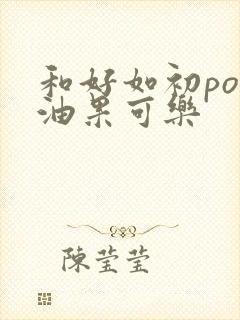 和好如初po
油果可樂
陳瑩瑩